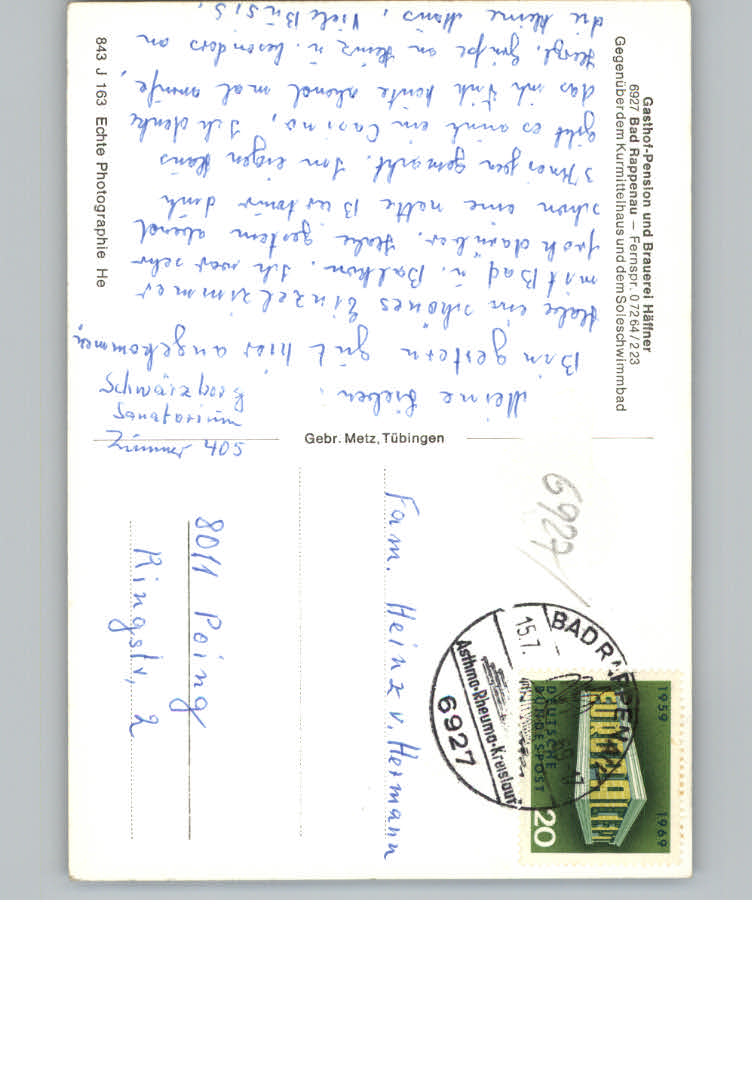 Gasthof-Pension und Brauerei Häffner
6927 Bad Rappenau — Fernspr. 0 72 64 / 2 23
Gegenüber dem Kurmittelhaus und dem Soleschwimmbad
Zimmer 405
Meine Lieben!
Bin gestern gut hier angekommen,
Habe ein schönes Einzelzimmer
mit Bad u. Balkon. Ich war sehr
froh darüber. Habe gestern abend
schon eine nette
3 Kneipen gemacht. Im eigen Haus
gibt es auch ein Casino, Ich denke
das ich Euch heute abend mal anrufe,
Herzl. Grüße an Heinz u. besonders an
die kleine Maus, Viele Busis,
843 J 163 Echte Photographie He
Gebr. Metz, Tübingen
6927/
Fam. Heinz v. Hermann
8011 Poing
Ringstr. 2
BAD RAPPENAU
15.7.
Asthma-Rheuma-Kreislauf
6927
1959
1969
EUROPA
CEPT
DEUTSCHE
BUNDESPOST
20